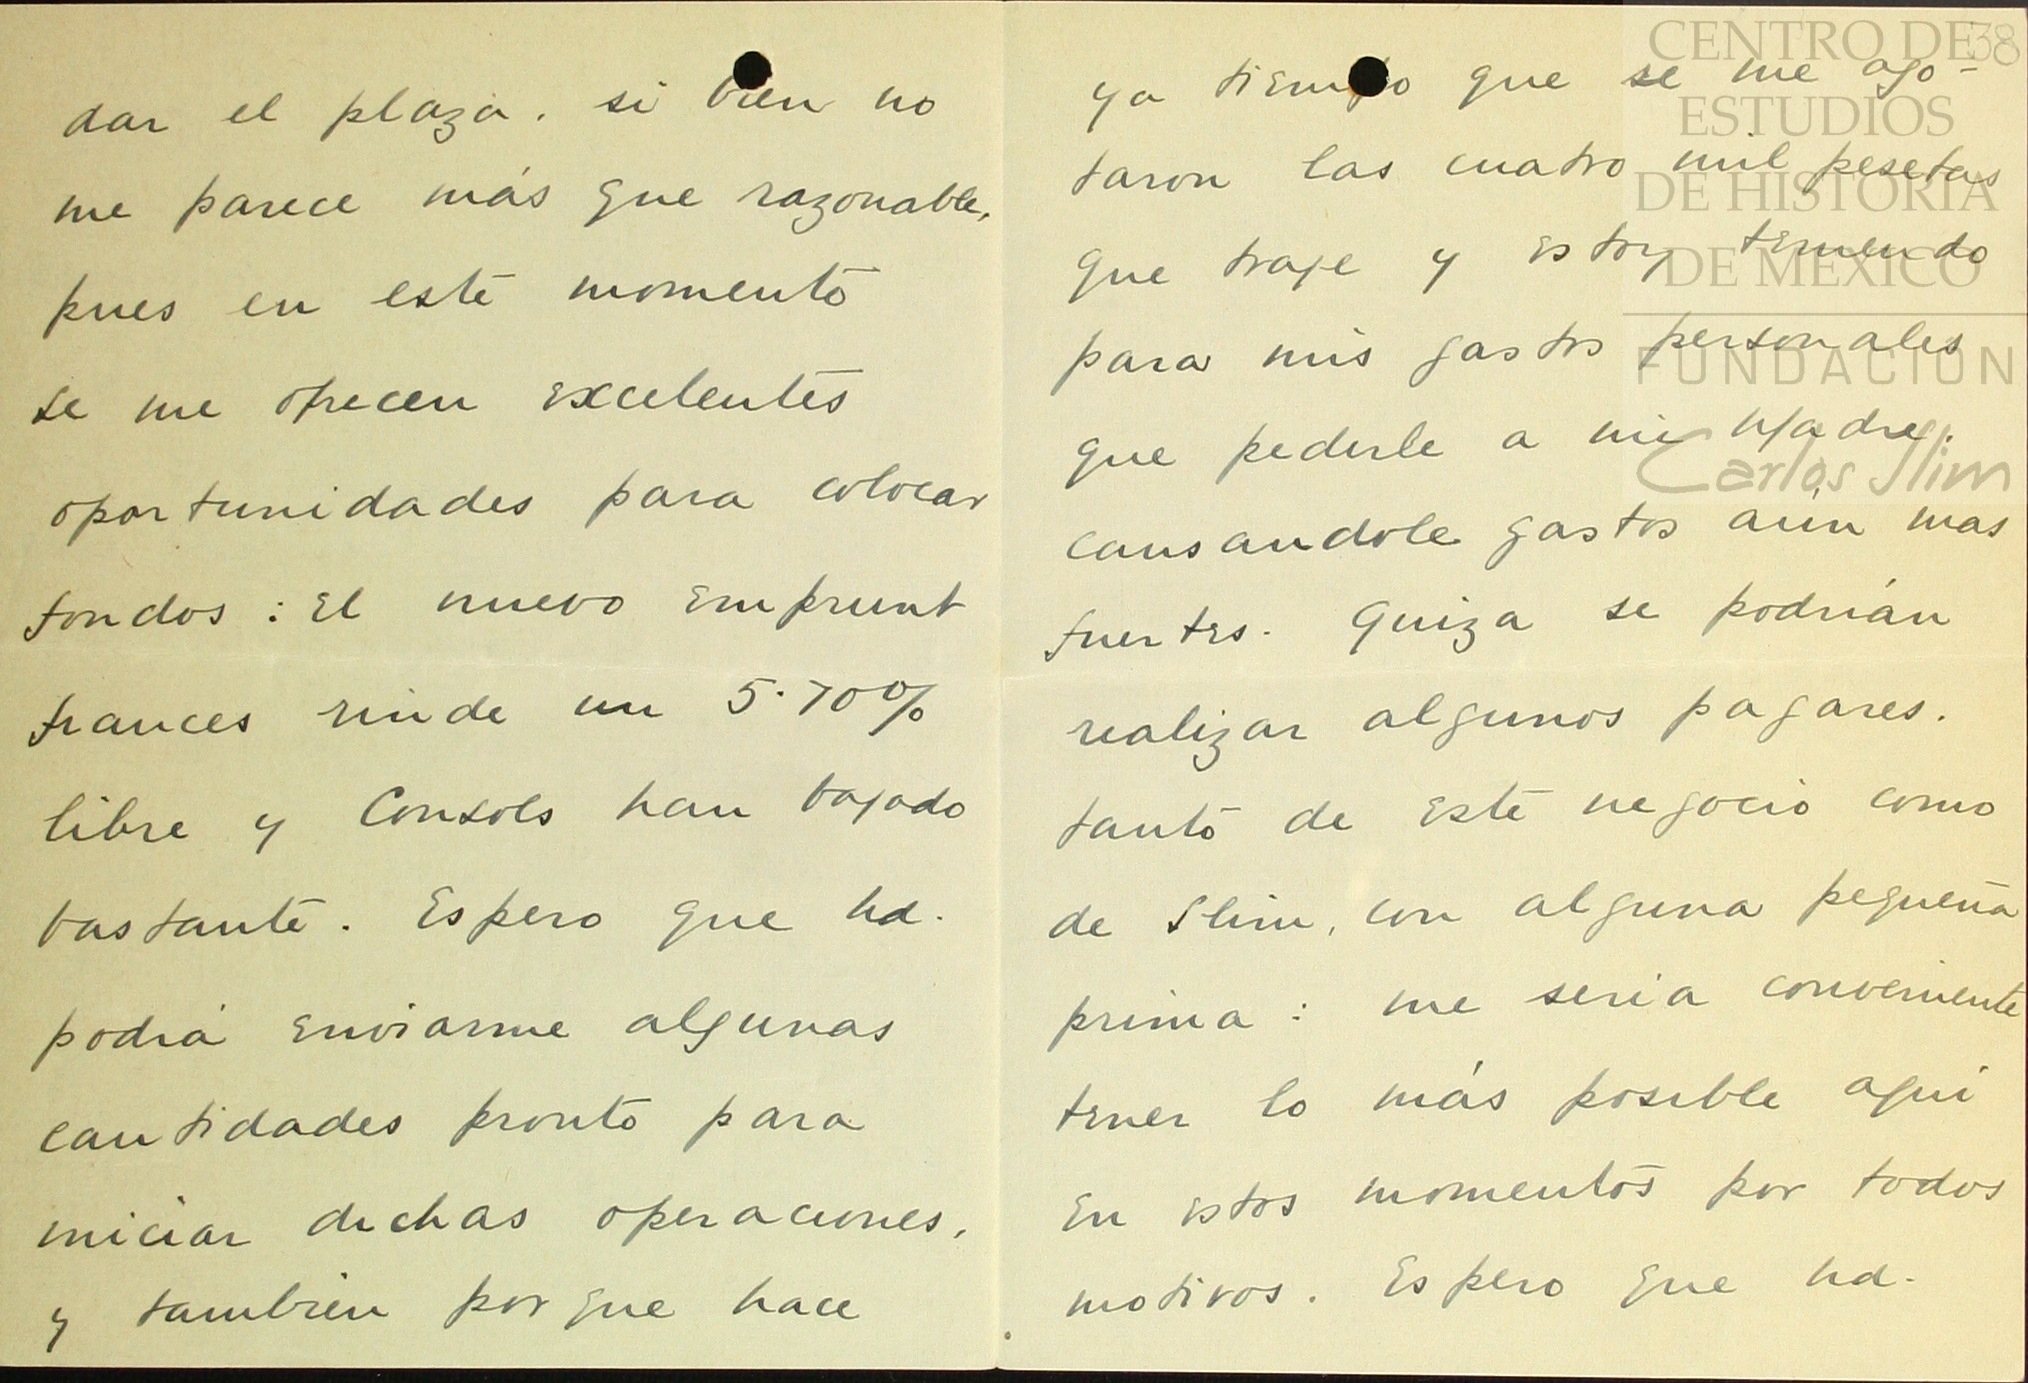 dar el plazo. si bien no
me parece más que razonable,
pues en este momento
se me ofrecen excelentes
oportunidades para colocar
fondos : El nuevo Emprunt
frances rinde un 5.70%
libre y Consols han bajado
bastante. Espero que Ud.
podrá enviarme algunas
cantidades pronto para
iniciar dichas operaciones,
y tambien porque hace
ya tiempo que se me ago-
taron las cuatro mil pesetas
que traje y estoy teniendo
para mis gastos personales
que pedirle a mi Madre.
causandole gastos aún mas
fuertes. Quiza se podrián
realizar algunos pagares.
tanto de este negocio como
de Slim, con alguna pequeña
prima : me seria conveniente
tener lo más posible aqui
en estos momentos por todos
motivos. Espero que Ud.
38
CENTRO DE
ESTUDIOS
DE HISTORIA
DE MEXICO
FUNDACION
Carlos Slim